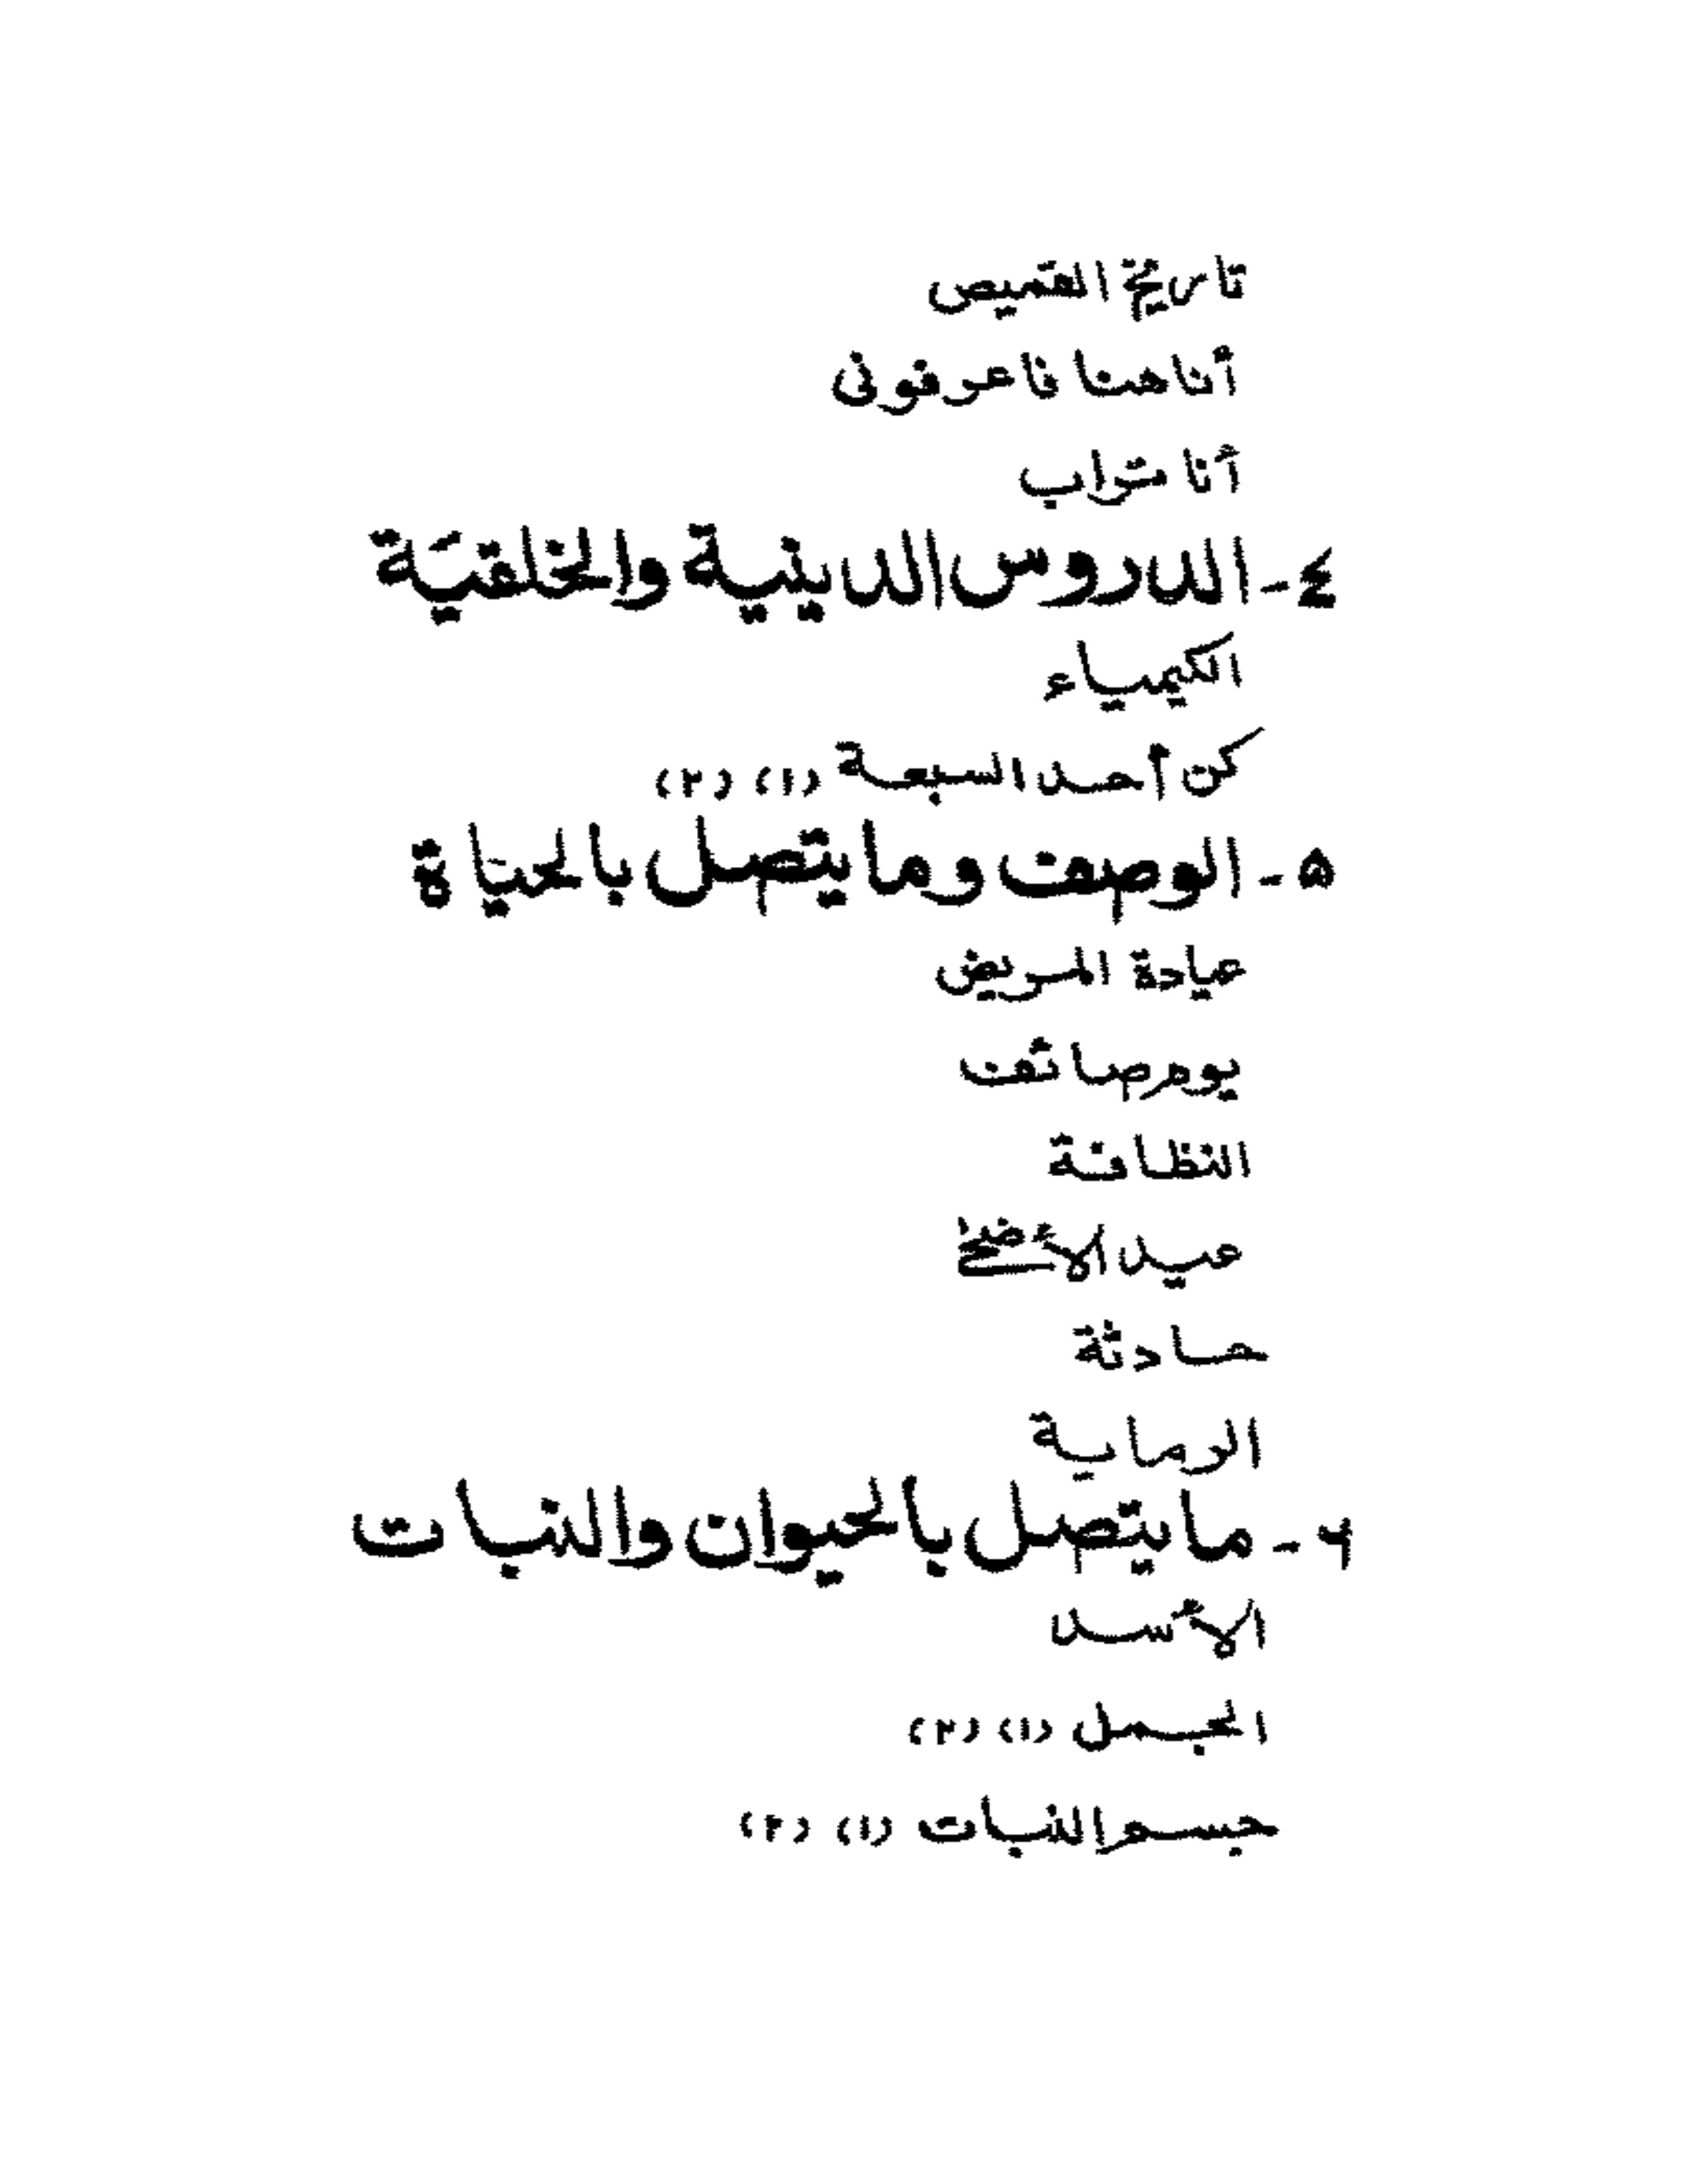 تاريخ القميص
أنا هنا فاعرفونى
أنا تراب
٤- الدروس الدينية والخلقيَّة
الكيمياء
كن أحد السبعة (١) (٢)
٥- الوصف وما يتصل بالحياة
عيادة المريض
يوم صائف
النظافة
عيد الأضحى
حادثة
الرماية
٦- ما يتصل بالحيوان والنبات
الأسد
الجمل (١) (٢)
جسم النبات (١) (٢)